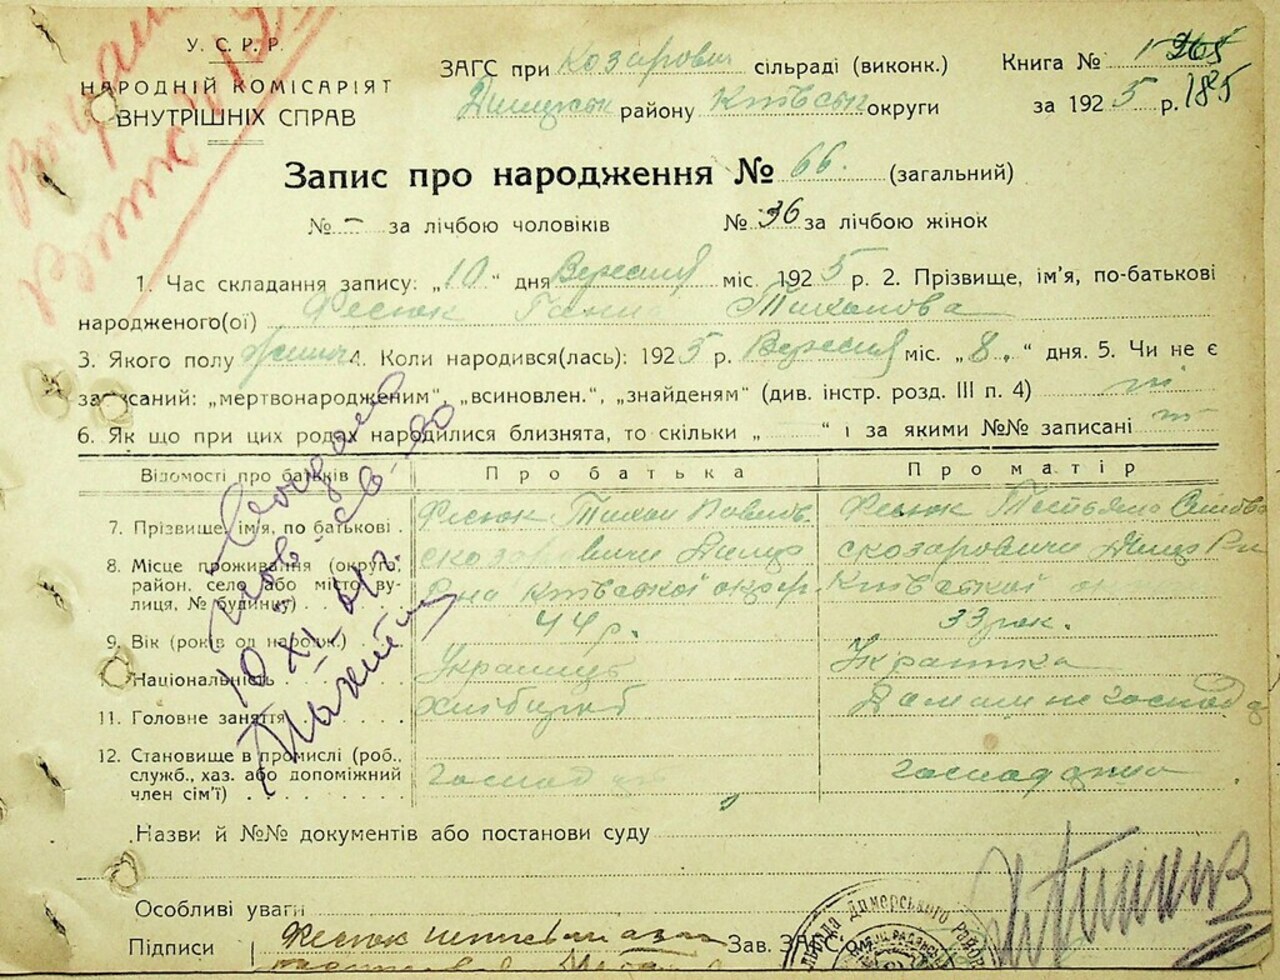 У. С. Р. Р.
НАРОДНІЙ КОМІСАРІЯТ
ВНУТРІШНІХ СПРАВ
ЗАГС при Козарович сільраді (виконк.)
Димерськ району Київськ округи
Книга № 1 265
за 1925 р. 185
Запис про народження № 66. (загальний)
№ – за лічбою чоловіків № 36 за лічбою жінок
1. Час складання запису: „10“ дня Вересня міс. 1925 р. 2. Прізвище, ім'я, по-батькові
народженого(ої) Фесюк Ганна Тихонова
3. Якого полу жіноч 4. Коли народився(лась): 1925 р. Вересня міс. „8.“ дня. 5. Чи не є
записаний: „мертвонародженим“, „всиновлен.“, „знайденям“ (див. інстр. розд. III п. 4) ні
6. Як що при цих родах народилися близнята, то скільки „ “ і за якими №№ записані
Відомості про батьків Про батька Про матір
7. Прізвище, ім'я, по батькові Фесюк Тихон Павлов. Фесюк Тетьяна
8. Місце проживання (округа, район, село або місто, вулиця, № будинку) с козаровичи Димер Рна Київської округ. с козаровичи Димер Рн Київської
9. Вік (років од народж.) 44 р. 33 рок.
Національність Українець Українка
11. Головне заняття Хлібороб Домашнє господ
12. Становище в промислі (роб., служб., хаз. або допоміжний член сім'ї) господар господарка
Назви й №№ документів або постанови суду
Особливі уваги
Підписи Фесюк Зав. ЗАГСом
10 XI
Димерського Район